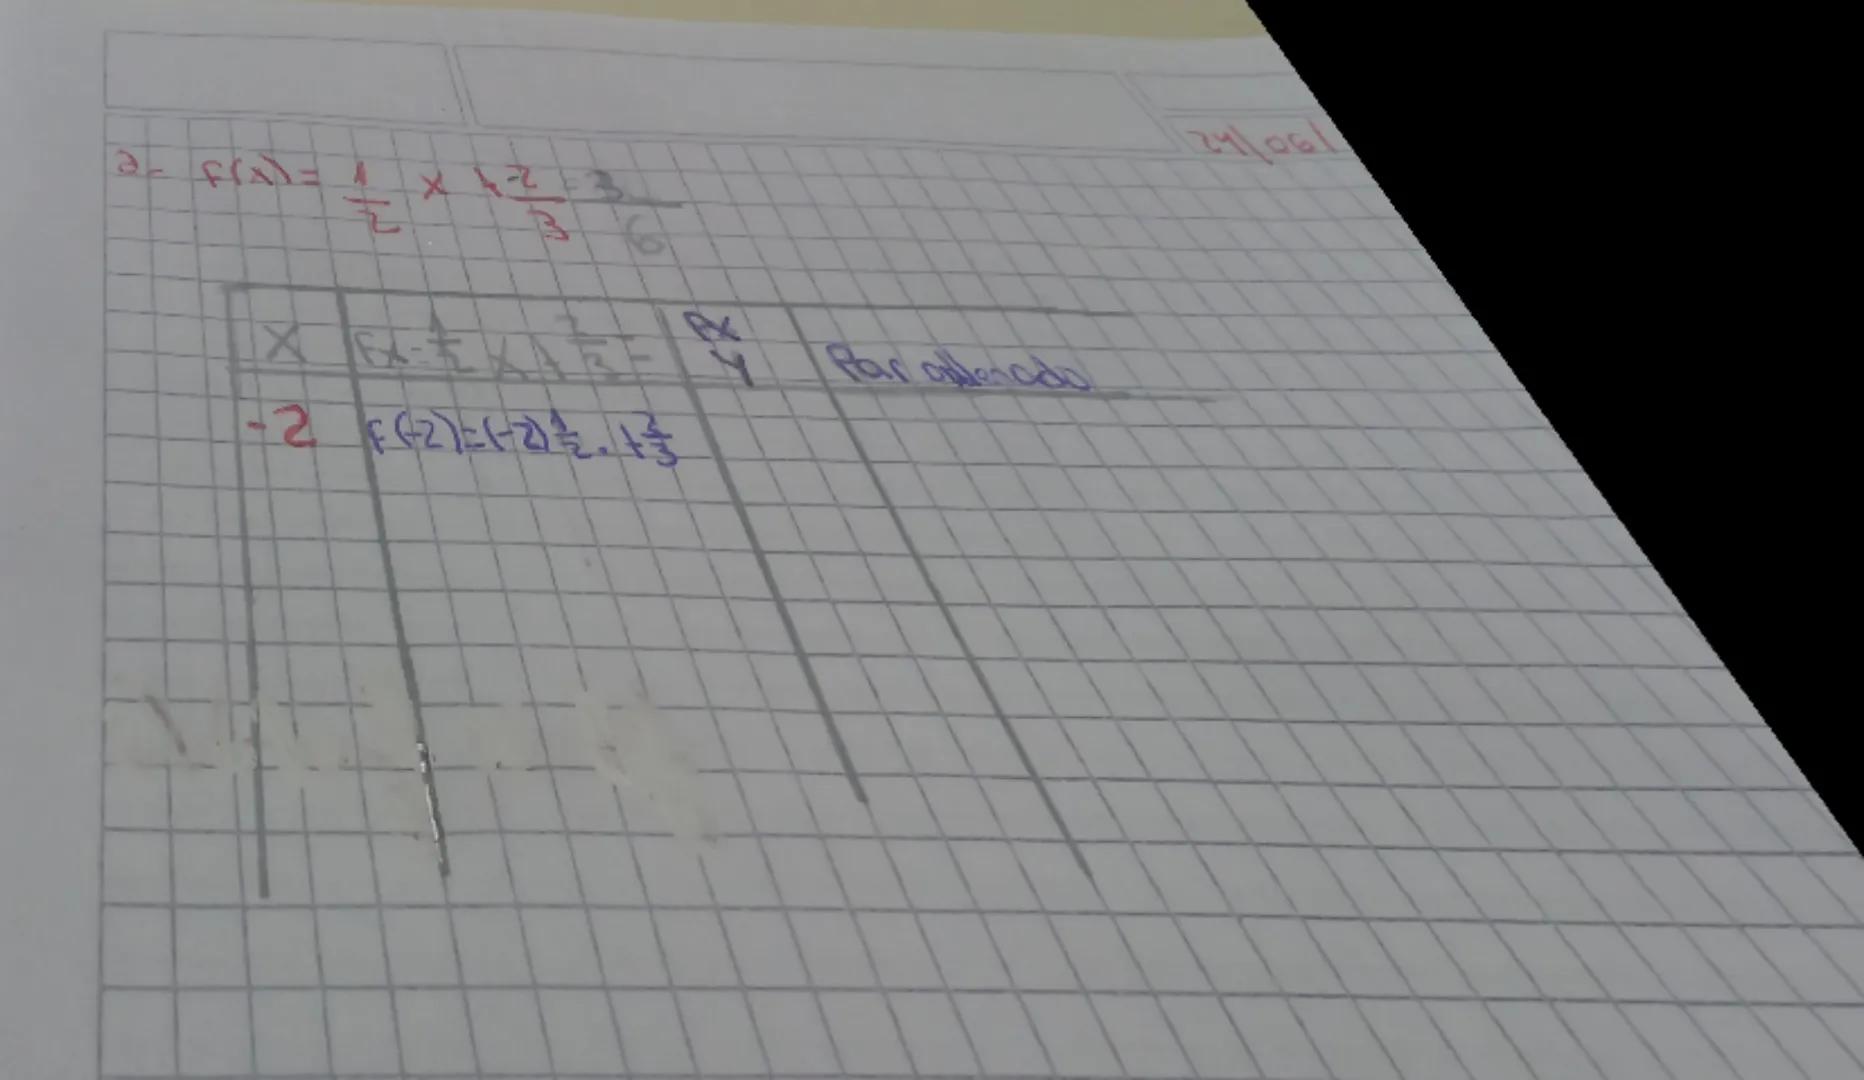 24/06/
2- F(x)= 1/2 x + -2/3 = 3/6
X Fx=1/2 x + 2/3 = Fx Y Par ordenado
-2 F(-2)=(-2)1/2. +2/3